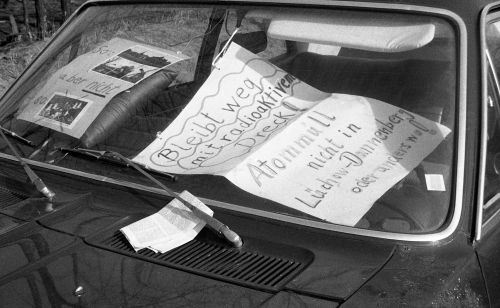 aber nicht
Bleibt weg
mit radioaktivem
Dreck!
Atommüll
nicht in
Lüchow-Dannenberg
oder anderswo!